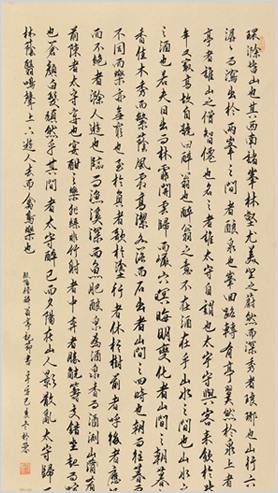 環滁皆山也其西南諸峯林壑尤美望之蔚然而深秀者琅琊也山行六
潺々而瀉出於兩峯之間者釀泉也峯回路轉有亭翼然於泉上者
亭者誰山之僧智僊也名之者誰太守自謂也太守與客來飲於此
年又最高故自號曰醉翁也醉翁之意不在酒在乎山水之間也山水
之酒也若夫日出而林霏開雲歸而巖穴暝晦明變化者山間之朝暮
香佳木秀而繁陰風霜高潔水落而石出者山間之四時也朝而往暮而
不同而樂亦無窮也至於負者歌於塗行者休於樹前者呼後者應
而不絕者滁人遊也臨溪而漁溪深而魚肥釀泉為酒泉香而酒洌山肴
前陳者太守宴也宴酣之樂非絲非竹射者中弈者勝觥籌交錯坐起而喧
也蒼顏白髮頹然乎其間者太守醉也已而夕陽在山人影散亂太守歸
林蔭翳鳴聲上下遊人去而禽鳥樂也
歐陽修醉翁亭記